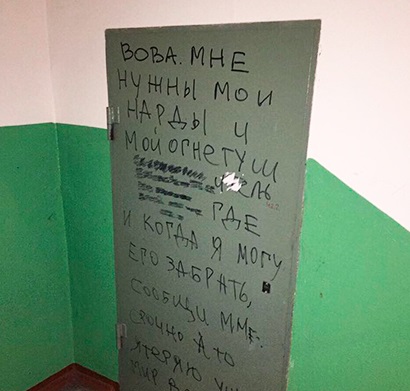 ВОВА. МНЕ
НУЖНЫ МОИ
НАРДЫ И
МОЙ ОГНЕТУШ
ИТЕЛЬ
ГДЕ
И КОГДА Я МОГУ
ЕГО ЗАБРАТЬ,
СООБЩИ МНЕ.
СРОЧНО А ТО
Я ТЕРЯЮ
МИР